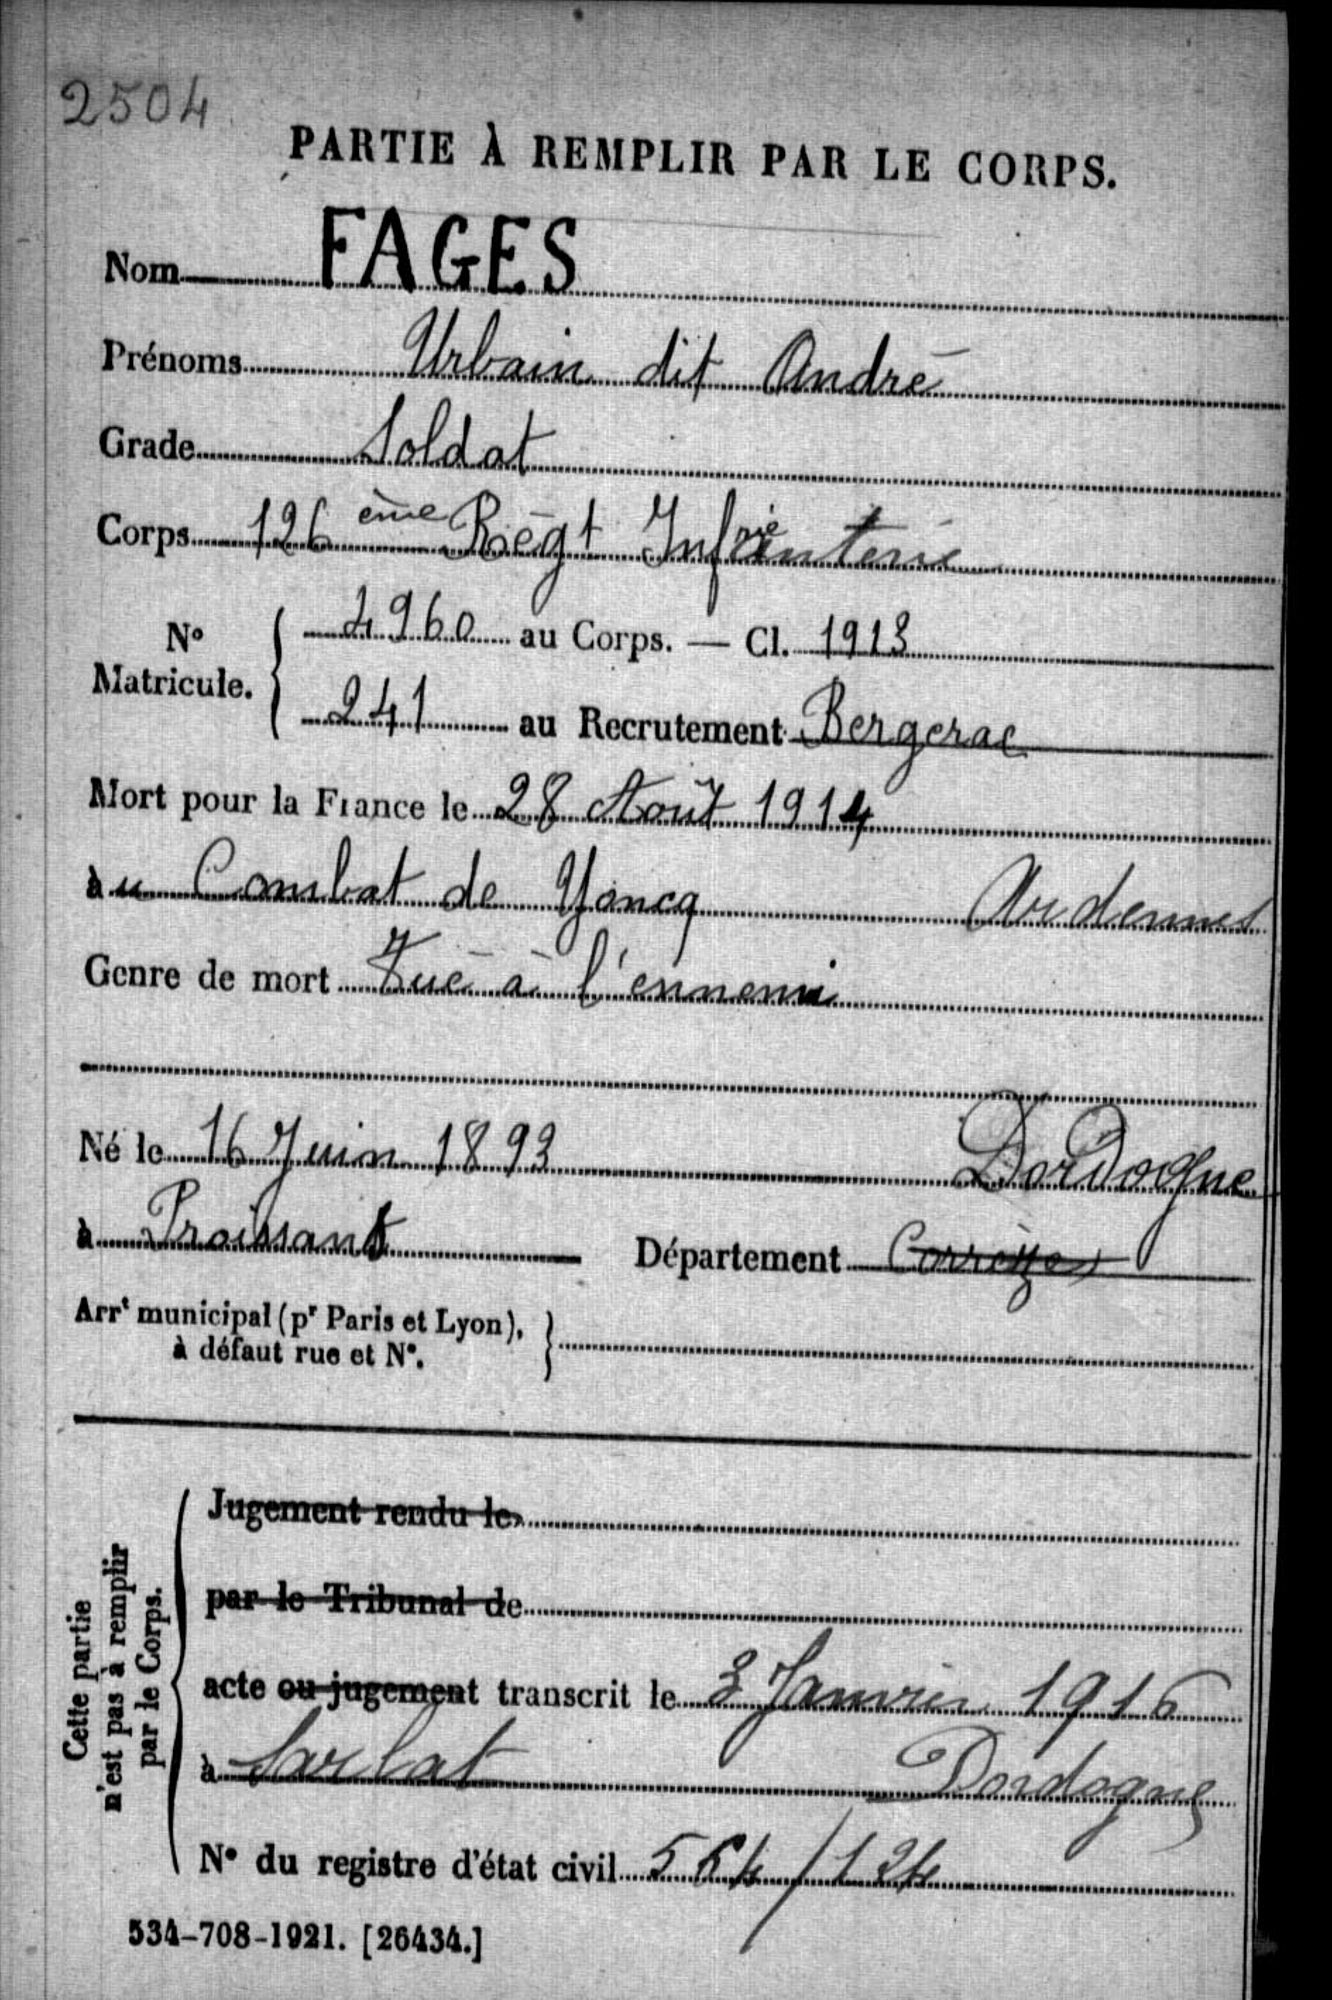 2504
PARTIE À REMPLIR PAR LE CORPS.
Nom FAGES
Prénoms Urbain dit André
Grade Soldat
Corps 126 ème Régt Infanterie
N° Matricule. 4960 au Corps. — Cl. 1913
241 au Recrutement Bergerac
Mort pour la France le 28 Août 1914
au Combat de Yoncq Ardennes
Genre de mort Tué à l'ennemi
Né le 16 Juin 1893 Dordogne
à Proissans Département Corrèze
Arrt municipal (pr Paris et Lyon),
à défaut rue et N°.
Cette partie
n'est pas à remplir
par le Corps.
Jugement rendu le
par le Tribunal de
acte ou jugement transcrit le 3 Janvier 1916
à Sarlat Dordogne
N° du registre d'état civil 564/124
534-708-1921. [26434.]